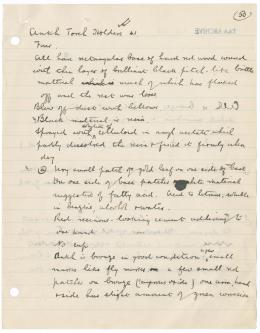 (50)
TAA ARCHIVE
Ankh Torch Holders
Four
All have rectangular base of hard red wood covered
with thin layer of brilliant black pitch-like brittle
material much of which has flaked
off and the rest was loose
Blew off dust with bellows
Black material is resin
Sprayed with celluloid in amyl acetate which
partly dissolved the resin & fixed it firmly when
dry
Very small patch of gold leaf on one side of base
On one side of base patches white material
suggestive of fatty acid. Acid to litmus, soluble
in benzine, alcohol & water
Red resinous-looking cement adhering to
one hand
No cup
Ankh is bronze in good condition, small
marks like fly marks & a few small red
patches on bronze one arm, hand
side has slight amount of green corrosion